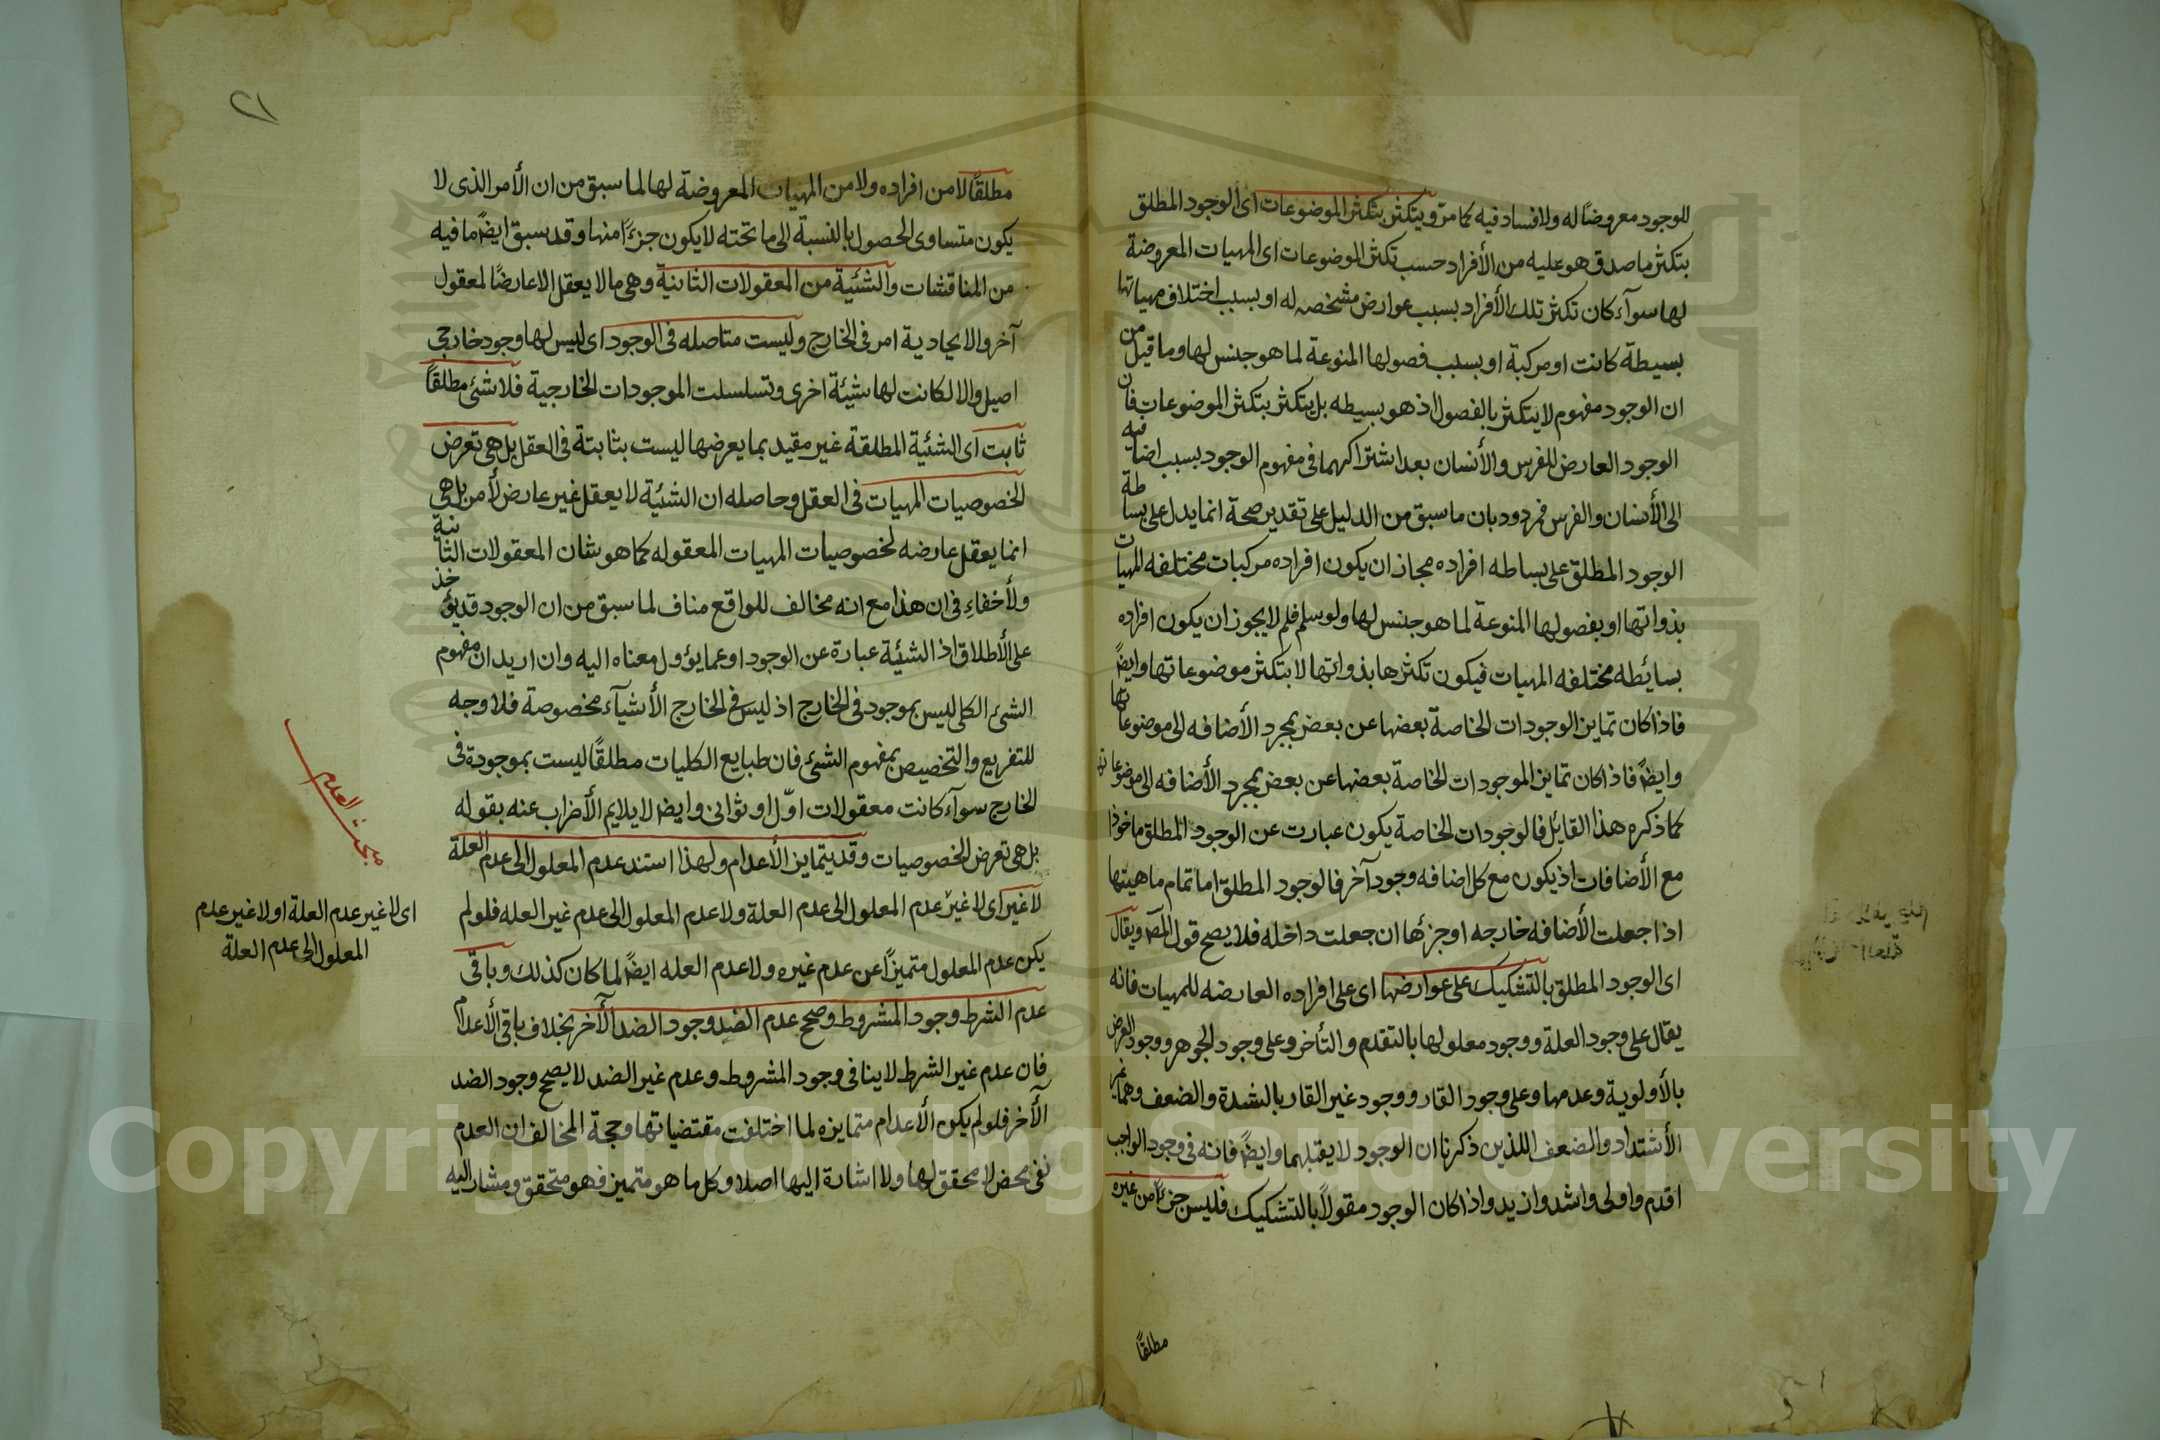 للوجود معروضًا له ولا فساد فيه كما مرّ ويتكثر بتكثر الموضوعات اى الوجود المطلق
بتكثر ما صدق هو عليه من الأفراد حسب تكثر الموضوعات اى المهيات المعروضة
لها سوآء كان تكثر تلك الأفراد بسبب عوارض مشخصه له او بسبب اختلاف مهياتها
بسيطة كانت او مركبة او بسبب فصولها المنوعة لما هو جنس لها وما قيل من
ان الوجود مفهوم لا يتكثر بالفصول اذ هو بسيطه بل يتكثر بتكثر الموضوعات فان
الوجود العارض للفرس والأنسان بعد اشتراكهما فى مفهوم الوجود بسبب اضافيه
الى الأنسان والفرس فمردود بان ما سبق من الدليل على تقدير صحة انما يدل على بساطة
الوجود المطلق على بساطه افراده مجاز ان يكون افراده مركبات مختلفه المهيات
بذواتها او بفصولها المنوعة لما هو جنس لها ولو سلم فلم لا يجوز ان يكون افراده
بسائطه مختلفه المهيات فيكون تكثرها بذواتها لا بتكثر موضوعاتها وايضًا
فاذا كان تمايز الوجودات الخاصة بعضها عن بعض بمجرد الأضافه الى موضوعاتها
وايضًا فاذا كان تمايز الموجودات الخاصة بعضها عن بعض بمجرد الأضافه الى موضوعاتها
كما ذكره هذا القايل فالوجودات الخاصة يكون عبارت عن الوجود المطلق ماخوذا
مع الأضافات اذ يكون مع كل اضافه وجود آخر فالوجود المطلق اما تمام ماهيتها
اذا جعلت الأضافه خارجه او جزئها ان جعلت داخله فلا يصح قول المص ويقال
اى الوجود المطلق بالتشكيك على عوارضها اى على افراده العارضه للمهيات فانه
يقال على وجود العلة ووجود معلولها بالتقدم والتأخر وعلى وجود الجوهر ووجود العرض
بالأولوية وعدمها وعلى وجود القار ووجود غير القار بالشدة والضعف وهما غير
الأشتداد والضعف اللذين ذكرنا ان الوجود لا يقبلهما وايضًا فانه فى وجود الواجب
اقدم واولى واشد وازيد واذا كان الوجود مقولاً بالتشكيك فليس جزءًا من غيره
مطلقًا
٢١
مطلقًا لا من افراده ولا من المهيات المعروضة لها لما سبق من ان الأمر الذى لا
يكون متساوى الحصول بالنسبة الى ما تحته لا يكون جزءًا منها وقد سبق ايضًا ما فيه
من المناقشات والشئية من المعقولات الثانية وهى ما لا يعقل الا عارضًا لمعقول
آخر والا يحاديه امر فى الخارج وليست متاصله فى الوجود اى ليس لها وجود خارجى
اصيل والا لكانت لها شئية اخرى وتسلسلت الموجودات الخارجية فلا شئ مطلقًا
ثابت اى الشئية المطلقة غير مقيد بما يعرضها ليست بثابتة فى العقل بل هى تعرض
لخصوصيات المهيات فى العقل وحاصله ان الشئية لا يعقل غير عارض لأمر بل هى
انما يعقل عارضه لخصوصيات المهيات المعقوله كما هو شان المعقولات الثانية
ولأخفاء فى ان هذا مع انه مخالف للواقع مناف لما سبق من ان الوجود قد يؤخذ
على الأطلاق اذ الشئية عبارة عن الوجود او عما يؤول معناه اليه وان اريد ان مفهوم
الشئ الكلى ليس بموجود فى الخارج اذ ليس فى الخارج الأشيآء مخصوصة فلا وجه
للتفريع والتخصيص بمفهوم الشئ فان طبايع الكليات مطلقًا ليست بموجودة فى
الخارج سوآء كانت معقولات اوّل او ثوانى وايضا لا يلايم الأضراب عنه بقوله
بل هى تعرض الخصوصيات وقد يتمايز الأعدام ولهذا استند عدم المعلول الى عدم العلة
لا غير اى لا غير عدم المعلول الى عدم العلة ولا عدم المعلول الى عدم غير العله فلو لم
يكن عدم المعلول متميزًا عن عدم غيره ولا عدم العله ايضًا لما كان كذلك وبافى
عدم الشرط وجود المشروط وصحح عدم الضد وجود الضد الآخر بخلاف باقى الأعدام
فان عدم غير الشرط لا ينافى وجود المشروط وعدم غير الضد لا يصحح وجود الضد
الآخر فلو لم يكن الأعدام متمايزه لما اختلفت مقتضياتها وحجة المخالف ان العدم
نفى محض لا تحقق لها ولا اشارة اليها اصلا وكل ما هو متميز فهو متحقق ومشار اليه
مبحث العدم
اى لا غير عدم العلة او لا غير عدم
المعلول الى عدم العلة
Copyright © King Saud University